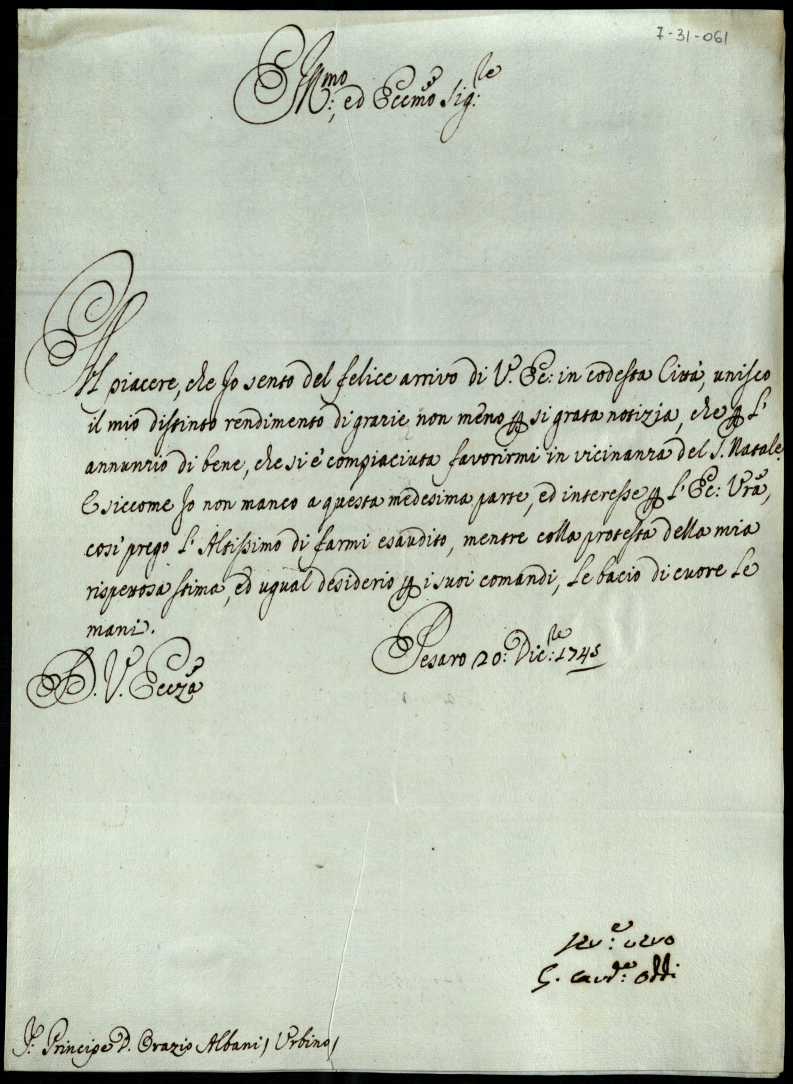 7-31-061
Ill:mo, ed Eccmo Sig:re
Al piacere, che Jo sento del felice arrivo di V. Ec: in codesta Città, unisco
il mio distinto rendimento di grazie non meno p si grata notizia, che p l'
annunzio di bene, che si è compiaciuta favorirmi in vicinanza del S. Natale.
E siccome Jo non manco a questa medesima parte, ed interesse p l'Ec: Vrã,
così prego l'Altissimo di farmi esaudito, mentre colla protesta della mia
rispettosa stima, ed ugual desiderio p i suoi comandi, Le bacio di cuore le
mani.
Pesaro 20: Dic:re 1745
D. V. Eccza
Sev:e servo
G. Card:e Oddi
S: Principe D. Orazio Albani / Urbino /